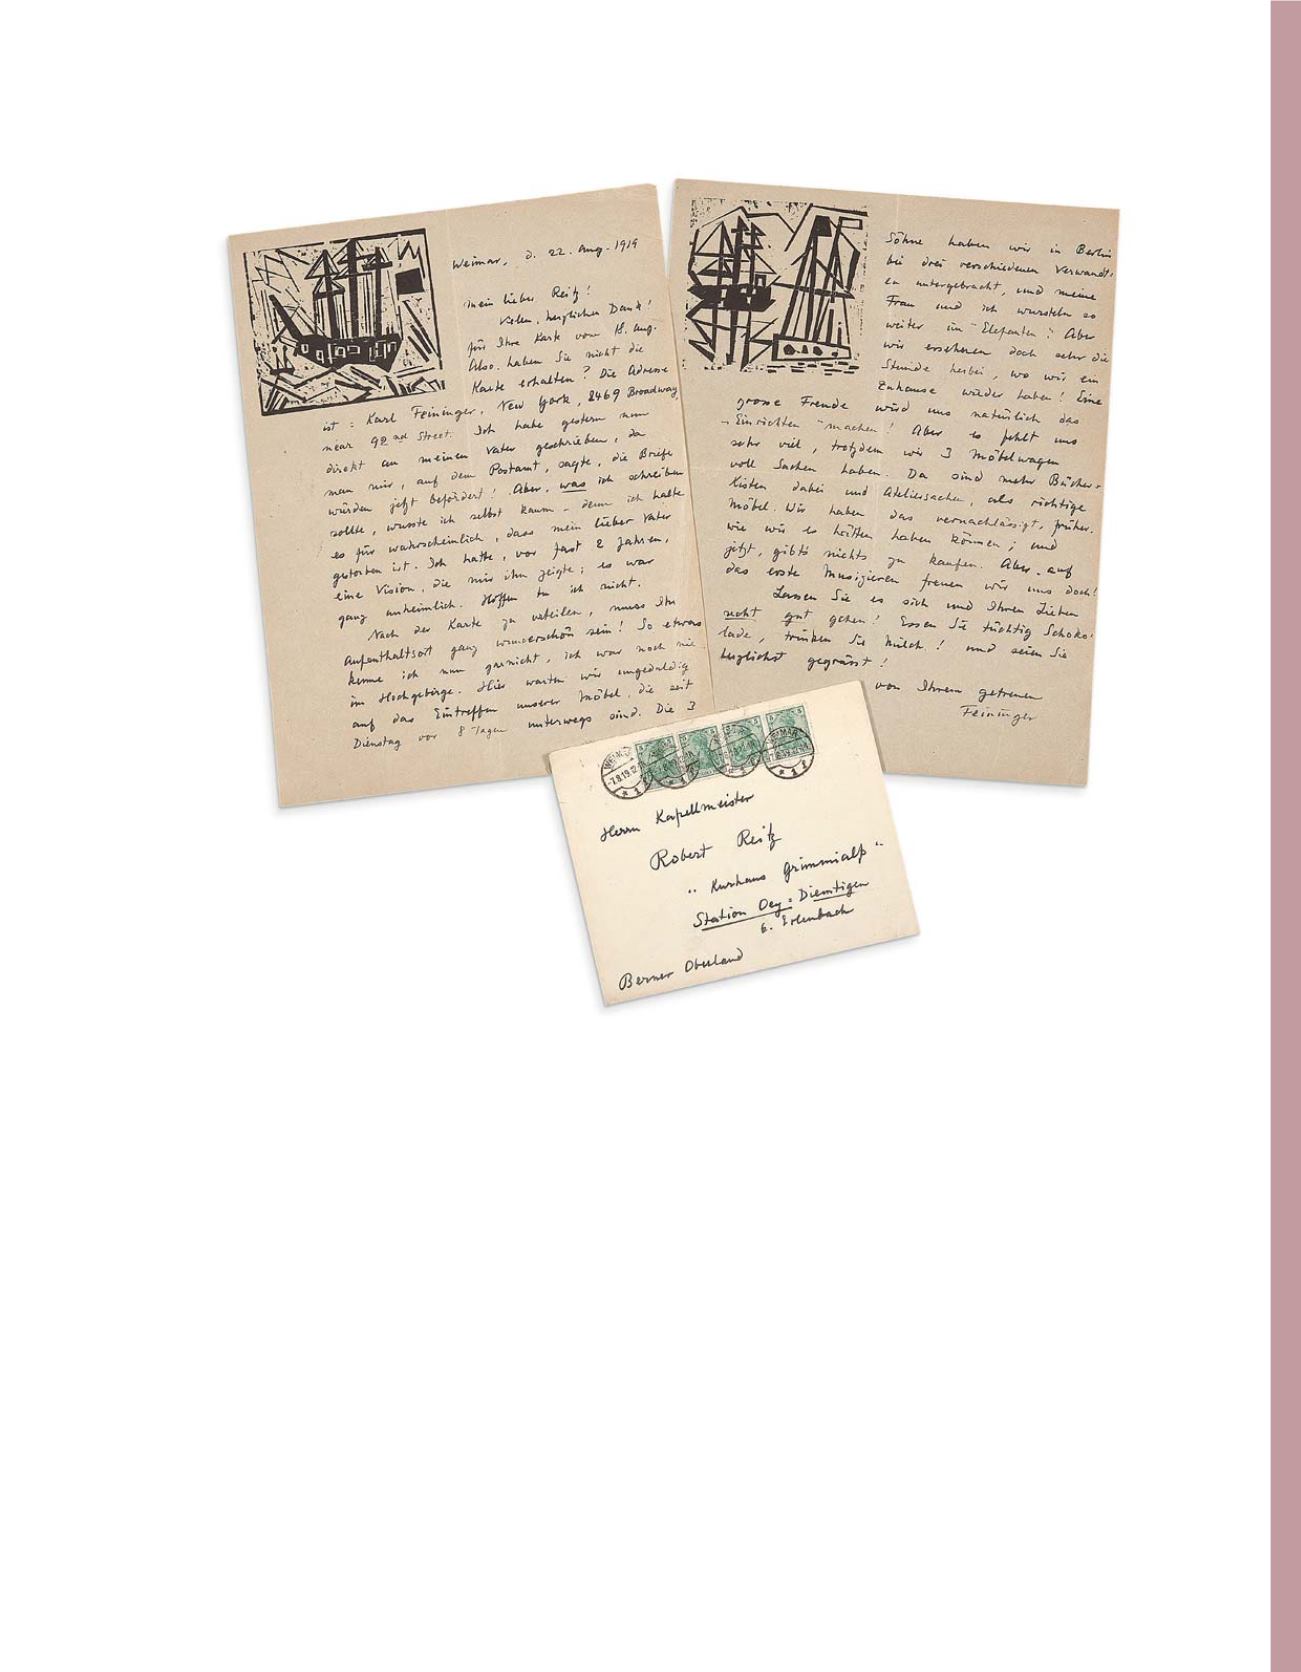 Weimar, d. 22. Aug. 1919
Mein lieber Reitz!
Vielen, herzlichen Dank!
für Ihre Karte vom 18. Aug.
Also haben Sie nicht die
Karte erhalten? Die Adresse
ist: Karl Feininger, New York, 2469 Broadway
near 92nd Street. Ich habe gestern nun
direkt an meinen Vater geschrieben, da
man mir, auf dem Postamt, sagte, die Briefe
würden jetzt befördert! Aber, was ich schreiben
sollte, wusste ich selbst kaum – denn ich halte
es für wahrscheinlich, dass mein lieber Vater
gestorben ist. Ich hatte, vor fast 2 Jahren,
eine Vision, die mir ihn zeigte; es war
ganz unheimlich. Hoffen tu ich nicht.
Nach der Karte zu urteilen, muss Ihr
Aufenthaltsort ganz wunderschön sein! So etwas
kenne ich nun garnicht, ich war noch nie
im Hochgebirge. Hier warten wir ungeduldig
auf das Eintreffen unserer Möbel, die seit
Dienstag vor 8 Tagen unterwegs sind. Die 3
Söhne haben wir in Berlin
bei drei verschiedenen Verwandt-
en untergebracht, und meine
Frau und ich wursteln so
weiter im "Elefanten"! Aber
wir ersehnen doch sehr die
Stunde herbei, wo wir ein
Zuhause wieder haben! Eine
grosse Freude wird uns natürlich das
"Einrichten" machen! Aber es fehlt uns
sehr viel, trotzdem wir 3 Möbelwagen
voll Sachen haben. Da sind mehr Bücher-
Kisten dabei und Ateliersachen, als richtige
Möbel. Wir haben das vernachlässigt, früher,
wie wir es hätten haben können; und
jetzt, gibts nichts zu kaufen. Aber auf
das erste Musizieren freuen wir uns doch!
Lassen Sie es sich und Ihren Lieben
recht gut gehen! Essen Sie tüchtig Schoko-
lade, trinken Sie Milch! und seien Sie
herzlichst gegrüsst!
von Ihrem getreuen
Feininger
WEIMAR
Herrn Kapellmeister
Robert Reitz
"Kurhaus Grimmialp"
Station Oey=Diemtigen
b. Erlenbach
Berner Oberland